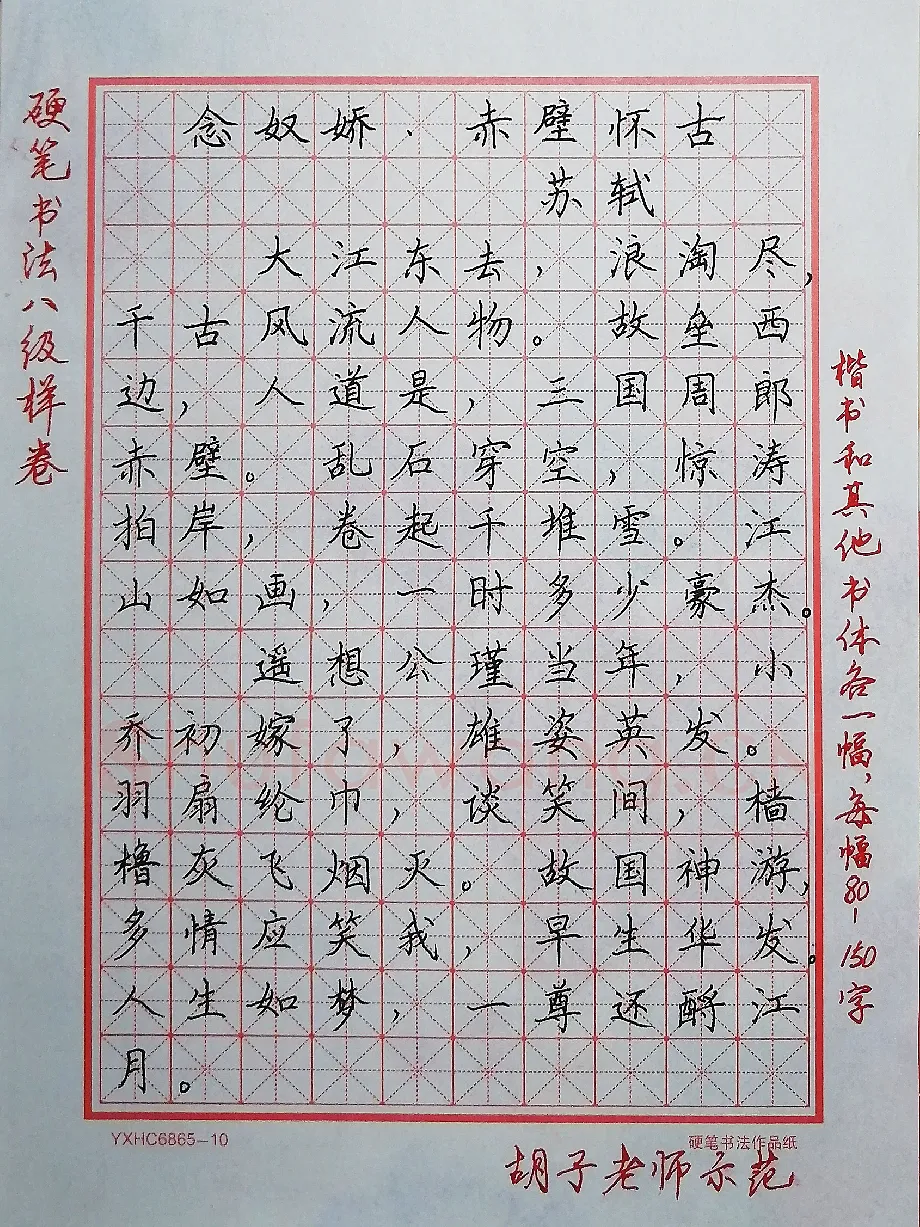 硬笔书法八级样卷
念奴娇·赤壁怀古
苏轼
大江东去，浪淘尽，
千古风流人物。故垒西
边，人道是，三国周郎
赤壁。乱石穿空，惊涛
拍岸，卷起千堆雪。江
山如画，一时多少豪杰。
遥想公瑾当年，小
乔初嫁了，雄姿英发。
羽扇纶巾，谈笑间，樯
橹灰飞烟灭。故国神游，
多情应笑我，早生华发。
人生如梦，一尊还酹江
月。
楷书和其他书体各一幅，每幅80-150字
YXHC6865-10
硬笔书法作品纸
胡子老师示范